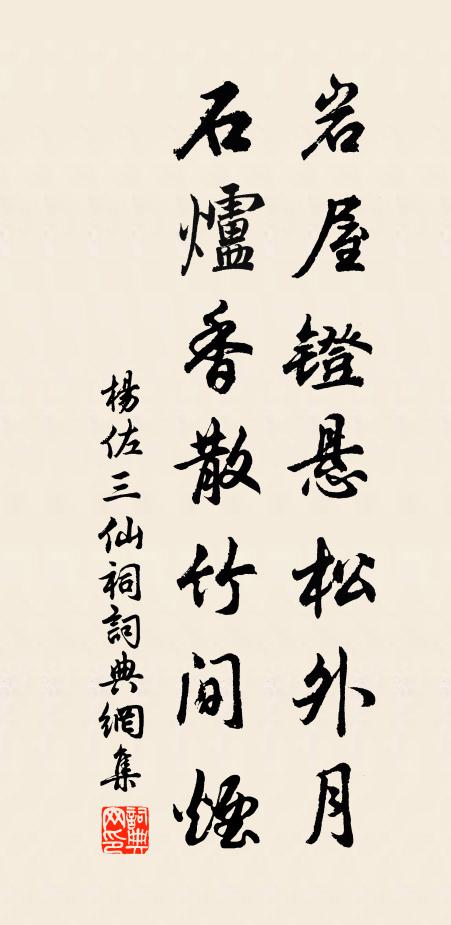 岩屋镫悬松外月
石爐香散竹間煙
楊佐三仙祠詞典網集
詞典
网印